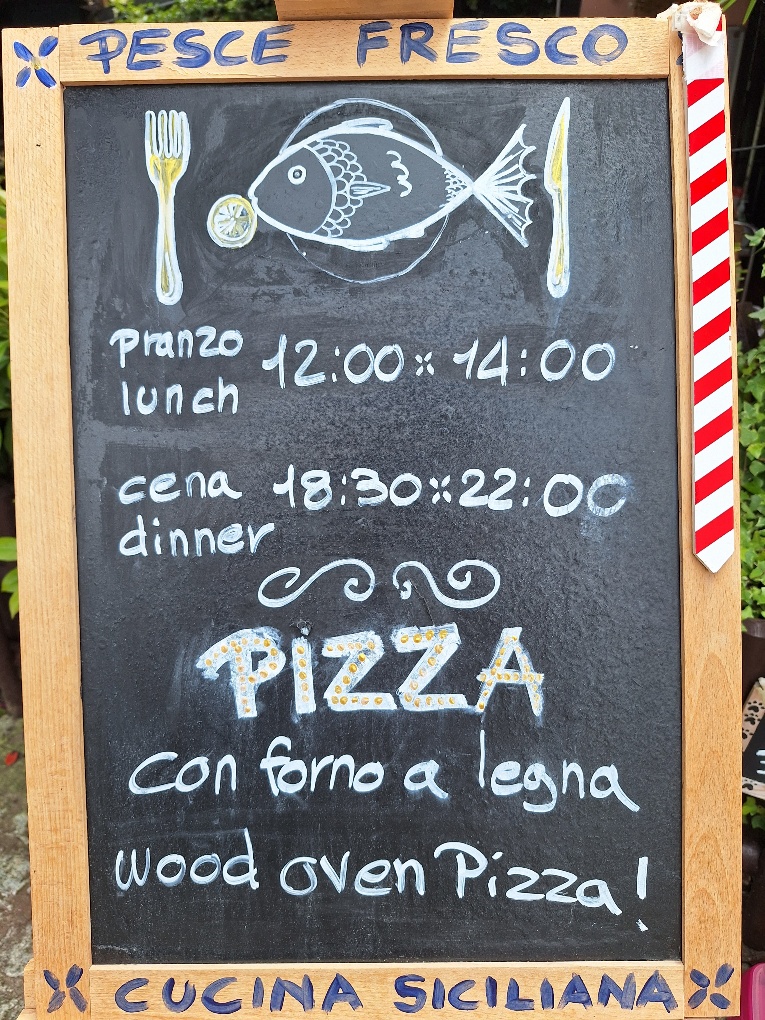 PESCE FRESCO
pranzo 12:00 14:00
lunch
cena 18:30 22:00
dinner
PIZZA
con forno a legna
wood oven Pizza!
CUCINA SICILIANA